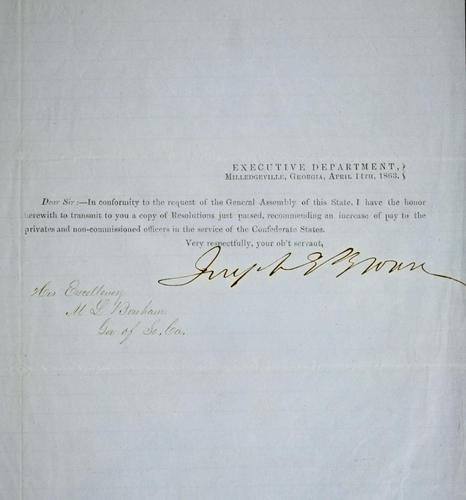 EXECUTIVE DEPARTMENT,}
MILLEDGEVILLE, GEORGIA, APRIL 14TH, 1863.}
Dear Sir:—In conformity to the request of the General Assembly of this State, I have the honor
herewith to transmit to you a copy of Resolutions just passed, recommending an increase of pay to the
privates and non-commissioned officers in the service of the Confederate States.
Very respectfully, your ob't servant,
Joseph E Brown
His Excellency
M L Bonham
Gov of So. Ca.